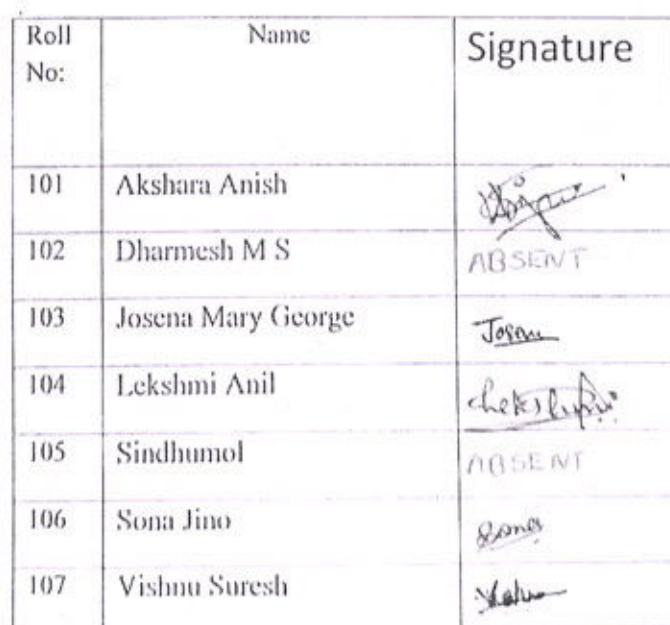 Roll No: Name Signature
101 Akshara Anish
102 Dharmesh M S ABSENT
103 Josena Mary George
104 Lekshmi Anil
105 Sindhumol ABSENT
106 Sona Jino Sona
107 Vishnu Suresh